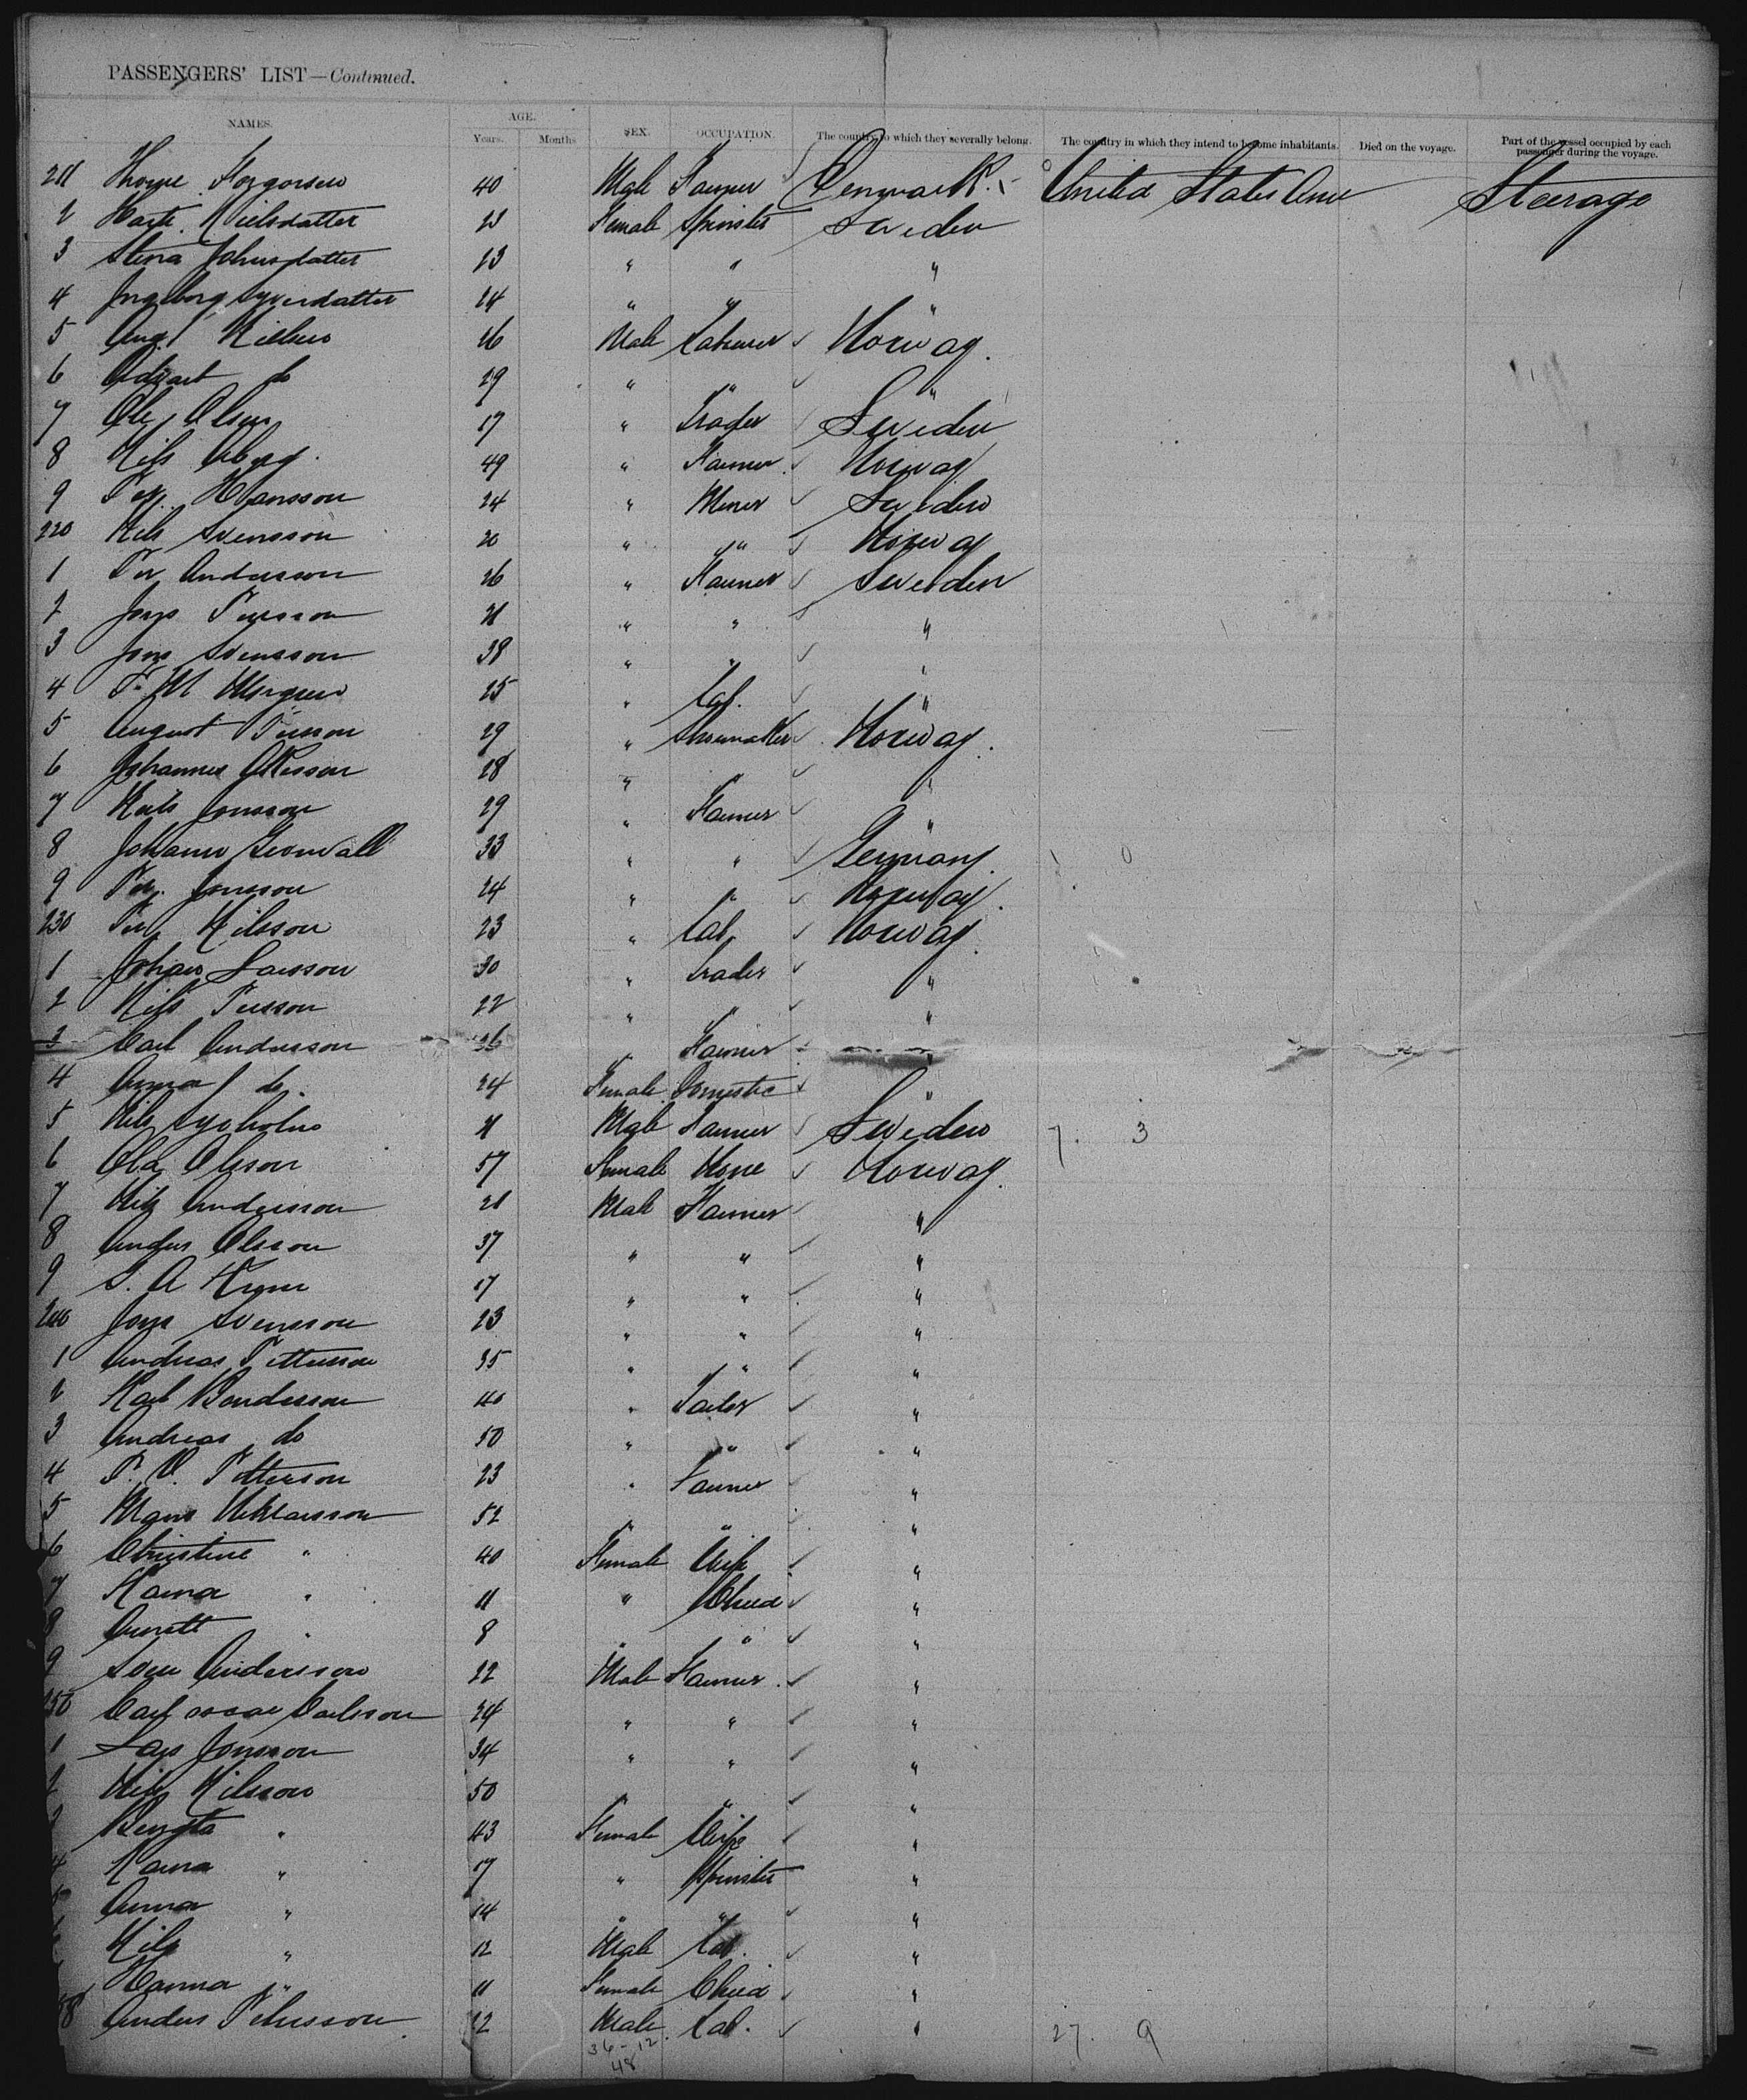 PASSENGERS' LIST—Continued.
NAMES. AGE. Years. Months SEX. OCCUPATION. The country to which they severally belong. The country in which they intend to become inhabitants. Died on the voyage. Part of the vessel occupied by each passenger during the voyage.
211 40 Male Farmer Denmark United States Ame Steerage
2 Nielsdatter 23 Female Spinster Sweden
3 Stina Johnsdatter 23 " " "
4 Ingeborg Syversdatter 24 " " "
5 Aug. Nielsen 26 Male Labourer Norway
6 do 29 " " "
7 Ole Olsen 17 " Trader Sweden
8 Nils Aberg 49 " Farmer Norway
9 Per Hansson 24 " Miner Sweden
220 Nils Svensson 20 " " Norway
1 Per Andersson 26 " Farmer Sweden
2 Jons Persson 21 " " "
3 Jons Svensson 38 " " "
4 25 " Lab. "
5 August Persson 29 " Shoemaker Norway
6 Johannes Akesson 28 " " "
7 Nils Jonsson 29 " Farmer "
8 33 " " Germany
9 Per Jonsson 24 " " Norway
230 Per Nilsson 23 " Lab. Norway
1 Johan Larsson 30 " Trader "
2 Nils Persson 22 " " "
3 Carl Andersson 26 " Farmer "
4 Anna do 24 Female Domestic "
5 Nils Syoholm 21 Male Farmer Sweden 7. 3
6 Ola Olsson 57 Female None Norway
7 Nils Andersson 21 Male Farmer "
8 Anders Olsson 37 " " "
9 S. A 17 " " "
240 Jons Svensson 23 " " "
1 Andreas Petterson 35 " " "
2 Karl Bendesson 40 " Tailor "
3 Andreas do 50 " " "
4 P. O. Petterson 23 " Farmer "
5 Mans 52 " " "
6 Christine " 40 Female Wife "
7 Karna " 11 " Child "
8 " 8 " " "
9 Sven Andersson 22 Male Farmer "
250 Carl Oscar Carlsson 24 " " "
1 Lars Jonsson 34 " " "
2 Nils Nilsson 50 " " "
3 Bengta " 43 Female Wife "
4 Karna " 17 " Spinster "
5 Anna " 14 " " "
Nils " 12 Male Lab. "
Hanna " 11 Female Child "
58 Anders 22 Male Lab. " 27. 9
36-12
48